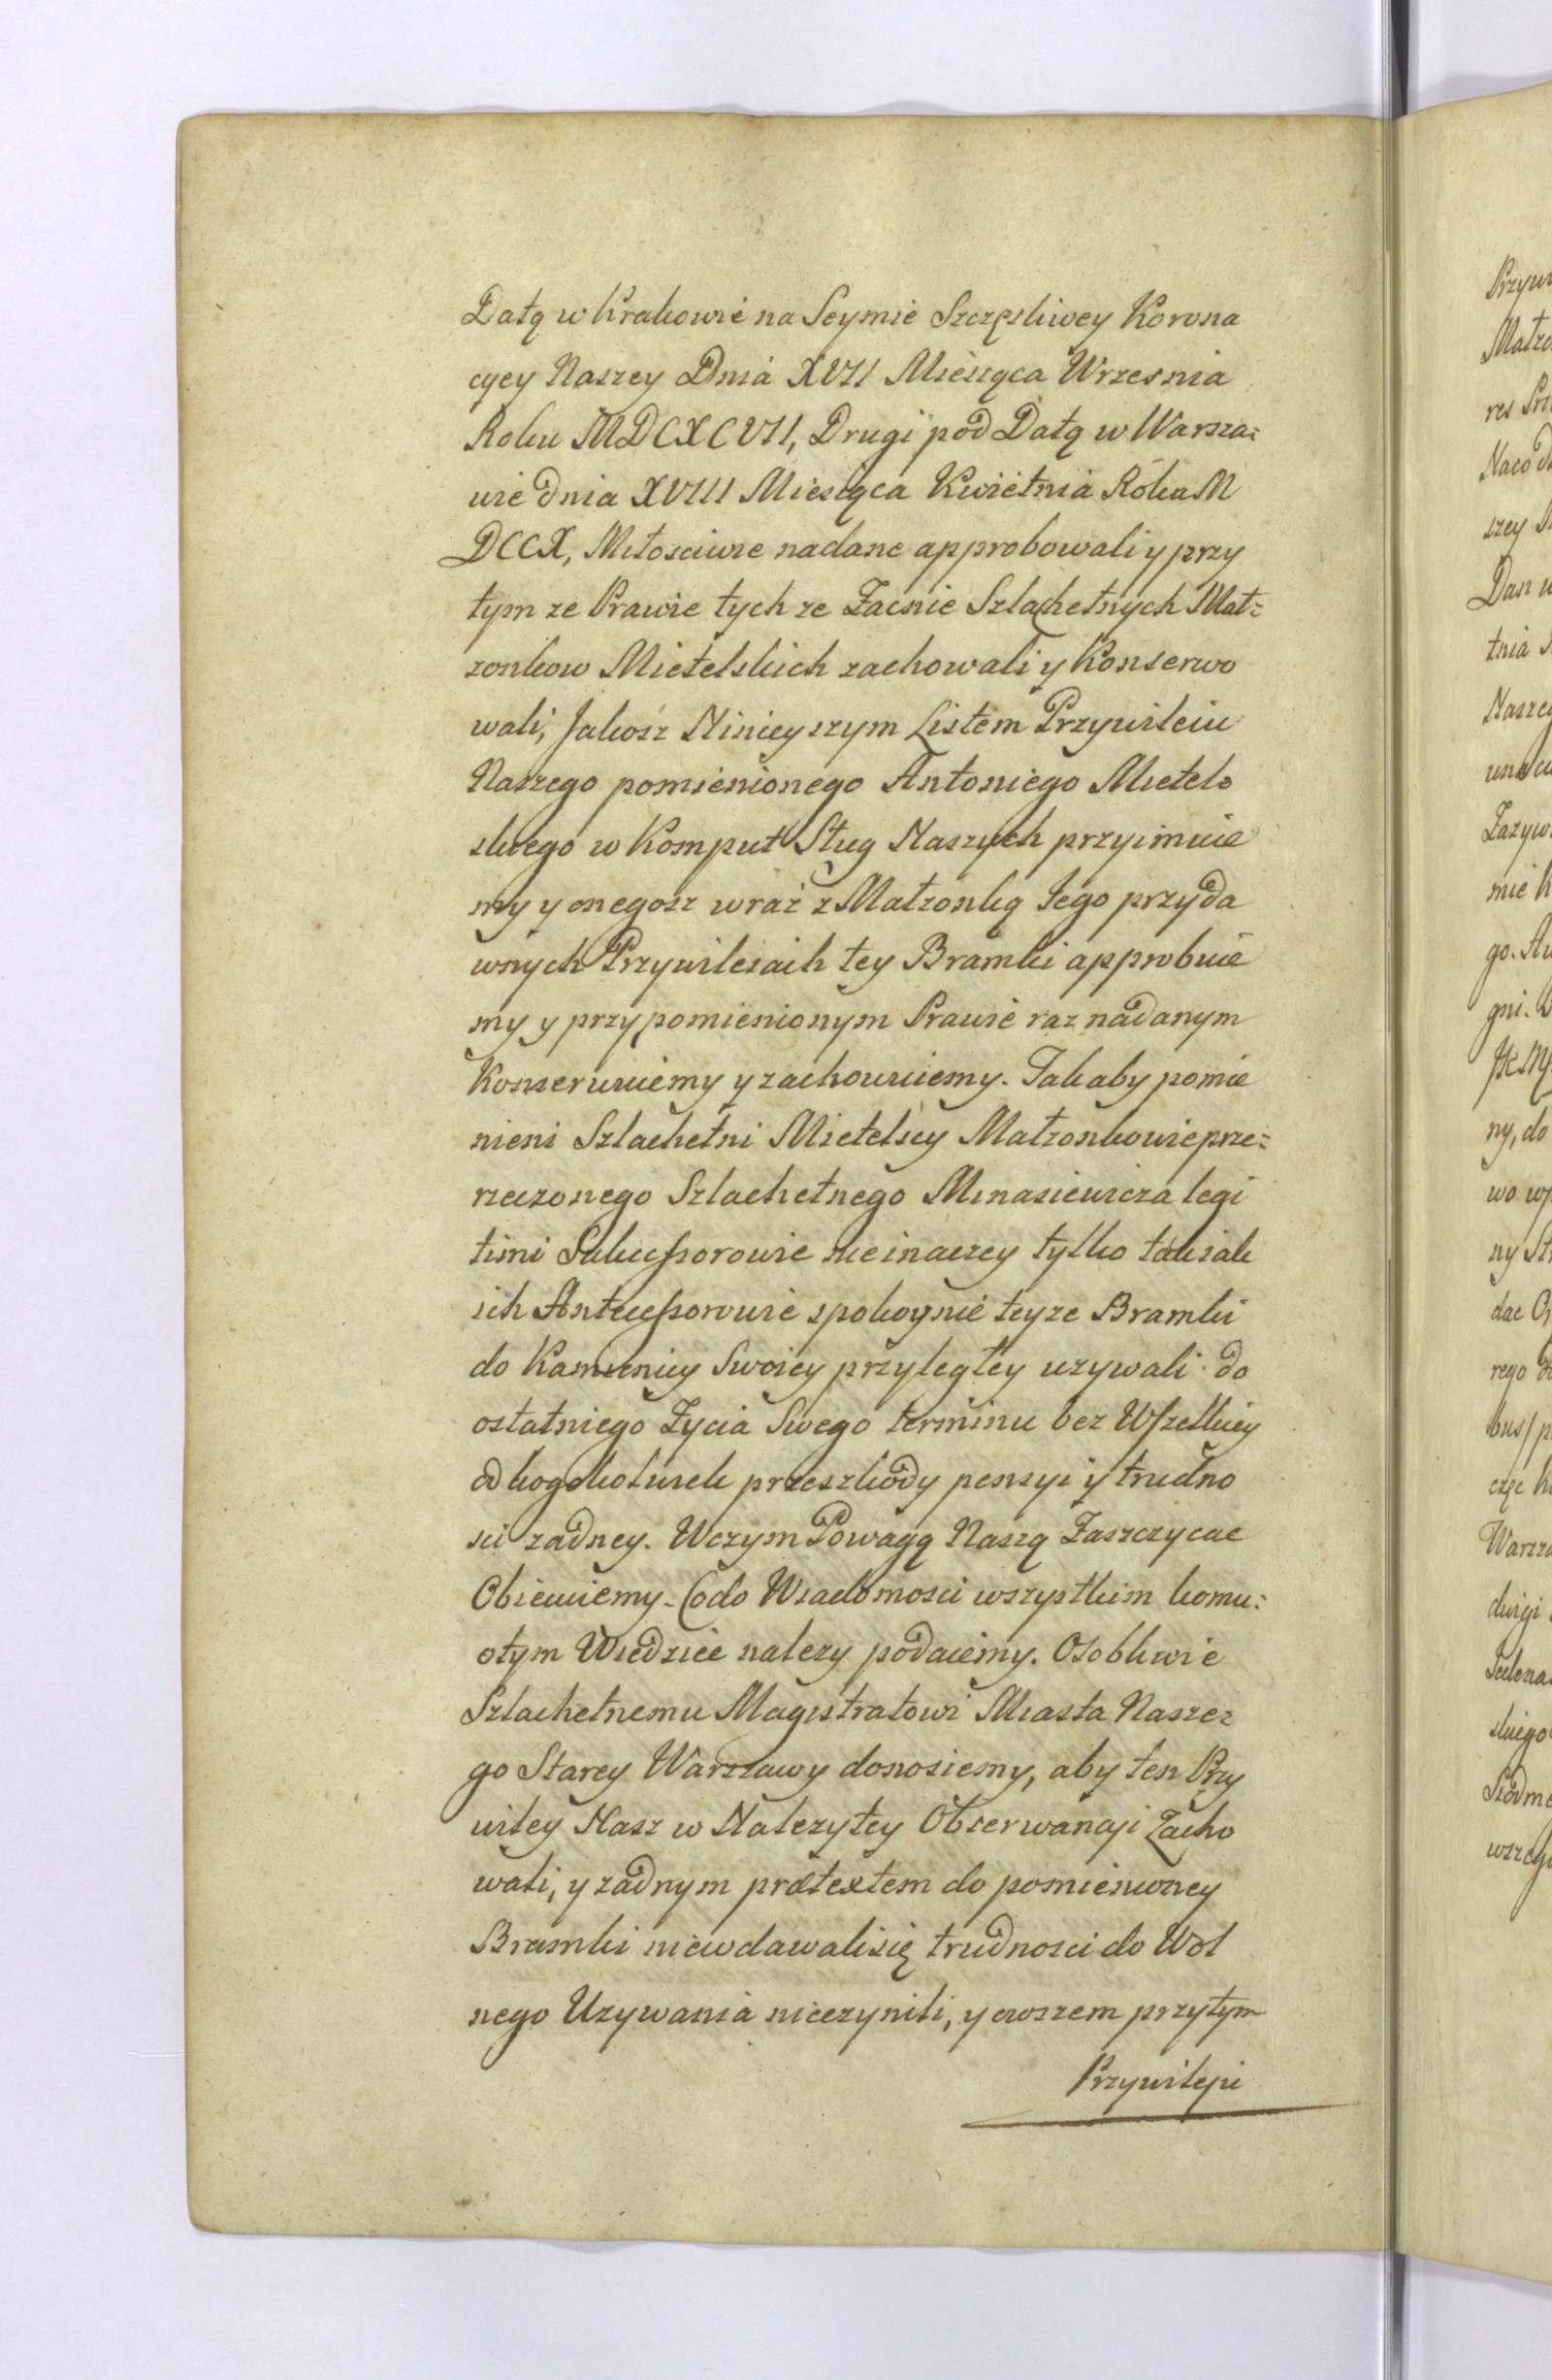 Datą w Krakowie na Seymie Szczęsliwey Korona
cyey Naszey Dnia XVII Miesiąca Wrzesnia
Roku MDCXCVII, Drugi pod Datą w Warsza=
wie dnia XVIII Miesiąca Kwietnia Roku M
DCCX, Miłosciwie nadane approbowali y przy
tym ze Prawie tych ze Zacnie Szlachetnych Mał=
zonkow Mietelskich zachowali y Konserwo
wali, Jakosz Ninieyszym Listem Przywileiu
Naszego pomienionego Antoniego Mietels
skiego w Komput Sług Naszych przyimuie
my y onegosz wraz z Małzonką Jego przy da
wnych Przywileiach tey Bramki approbuie
my y przy pomienionym Prawie raz nadanym
Konserwuiemy y zachowuiemy. Tak aby pomie
nieni Szlachetni Mietelscy Małzonkowie prze=
rzeczonego Szlachetnego Minasiewicza legi
timi Sukcessorowie nie inaczey tylko tak iak
ich Antecessorowie spokoynie teyze Bramki
do Kamienicy Swoiey przyległey uzywali do
ostatniego Zycia Swego terminu bez Wszelkiey
od kogokolwiek przeszkody pensyi y trudno
sci zadney. W czym Powagą Naszą Zaszczycac
Obiecuiemy. Co do Wiadomosci wszystkim komu:
o tym Wiedziec nalezy podaiemy. Osobliwie
Szlachetnemu Magistratowi Miasta Nasze=
go Starey Warszawy donosiemy, aby ten Przy
wiley Nasz w Nalezytey Obserwancyi Zacho
wali, y zadnym prætextem do pomienioney
Bramki niewdawali się trudnosci do Wol
nego Uzywania nieczynili, y owszem przy tym
Przywileju
Przyw
Małzo
szey
Dan w
tnia
Naszeg
Zazyw
mie K
go. Au
gni.
ny, do
wo
dac
rego
bus/p
Warsza
skiego